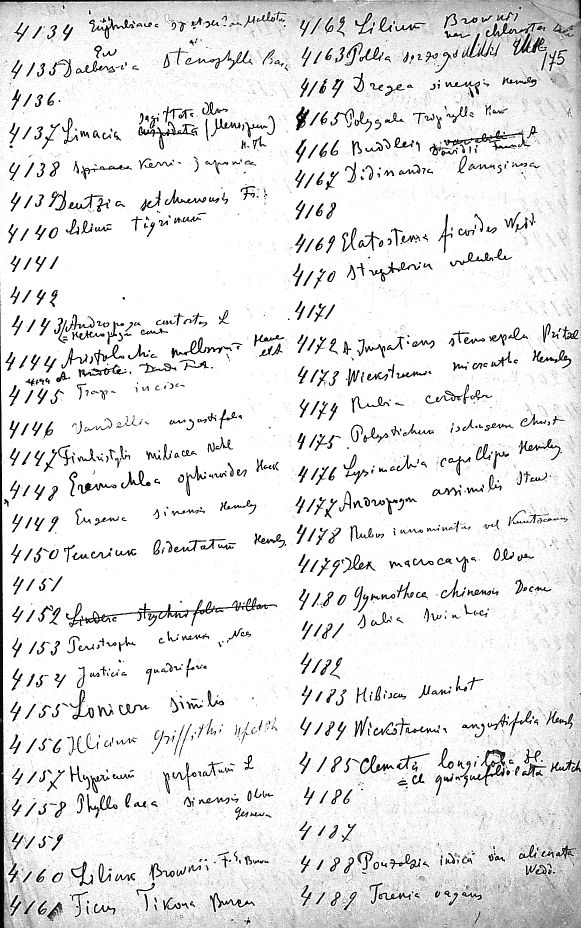 4134
4135 Dalbergia stenophylla
4136.
4137 Limacia sagittata Oliv
cuspidata (Menisperm)
4138 Spiraea Kerria japonica
4139 Deutzia setchuenensis Fr.
4140 Lilium tigrinum
4141
4142
4143 Andropogon contortus L
= Heteropogon cont
4144 Aristolochia mollissima Hance
4145 Trapa incisa
4146 Vandellia angustifolia
4147 Fimbristylis miliacea Vahl
4148 Eremochloa ophiuroides Hack
4149 Eugenia sinensis Hemsley
4150 Teucrium bidentatum Hemsley
4151
4152 Lindera strychnifolia Villar
4153 Peristrophe chinensis Nees
4154 Justicia quadrifaria
4155 Lonicera similis
4156 Illicium Griffithii
4157 Hypericum perforatum L
4158 Phyllolaea sinensis Oliv
4159
4160 Lilium Brownii
4161 Ficus Tikoua Bureau
4162 Lilium Brownii
var chloraster
175
4163 Pollia
4164 Dregea sinensis Hemsley
4165 Polygala Triphylla Ham
4166 Buddleia variabilis
Davidii Franch
4167 Didissandra lanuginosa
4168
4169 Elatostema ficoides Wedd
4170 Streptolirion volubile
4171
4172 Impatiens stenosepala Pritzel
4173 Wickstroemia micrantha Hemsley
4174 Rubia cordifolia
4175 Polystichum ischagense Christ
4176 Lysimachia capillipes Hemsley
4177 Andropogon assimilis Steud
4178 Rubus innominatus vel Kuntzeanus
4179 Ilex macrocarpa Oliver
4180 Gymnotheca chinensis Decne
4181 Sabia Swinhoei
4182
4183 Hibiscus Manihot
4184 Wickstroemia angustifolia Hemsley
4185 Clematis longiloba
= Cl quinquefoliolata Hutch
4186
4187
4188 Pouzolzia indica var alienata
Wedd
4189 Torenia vagans